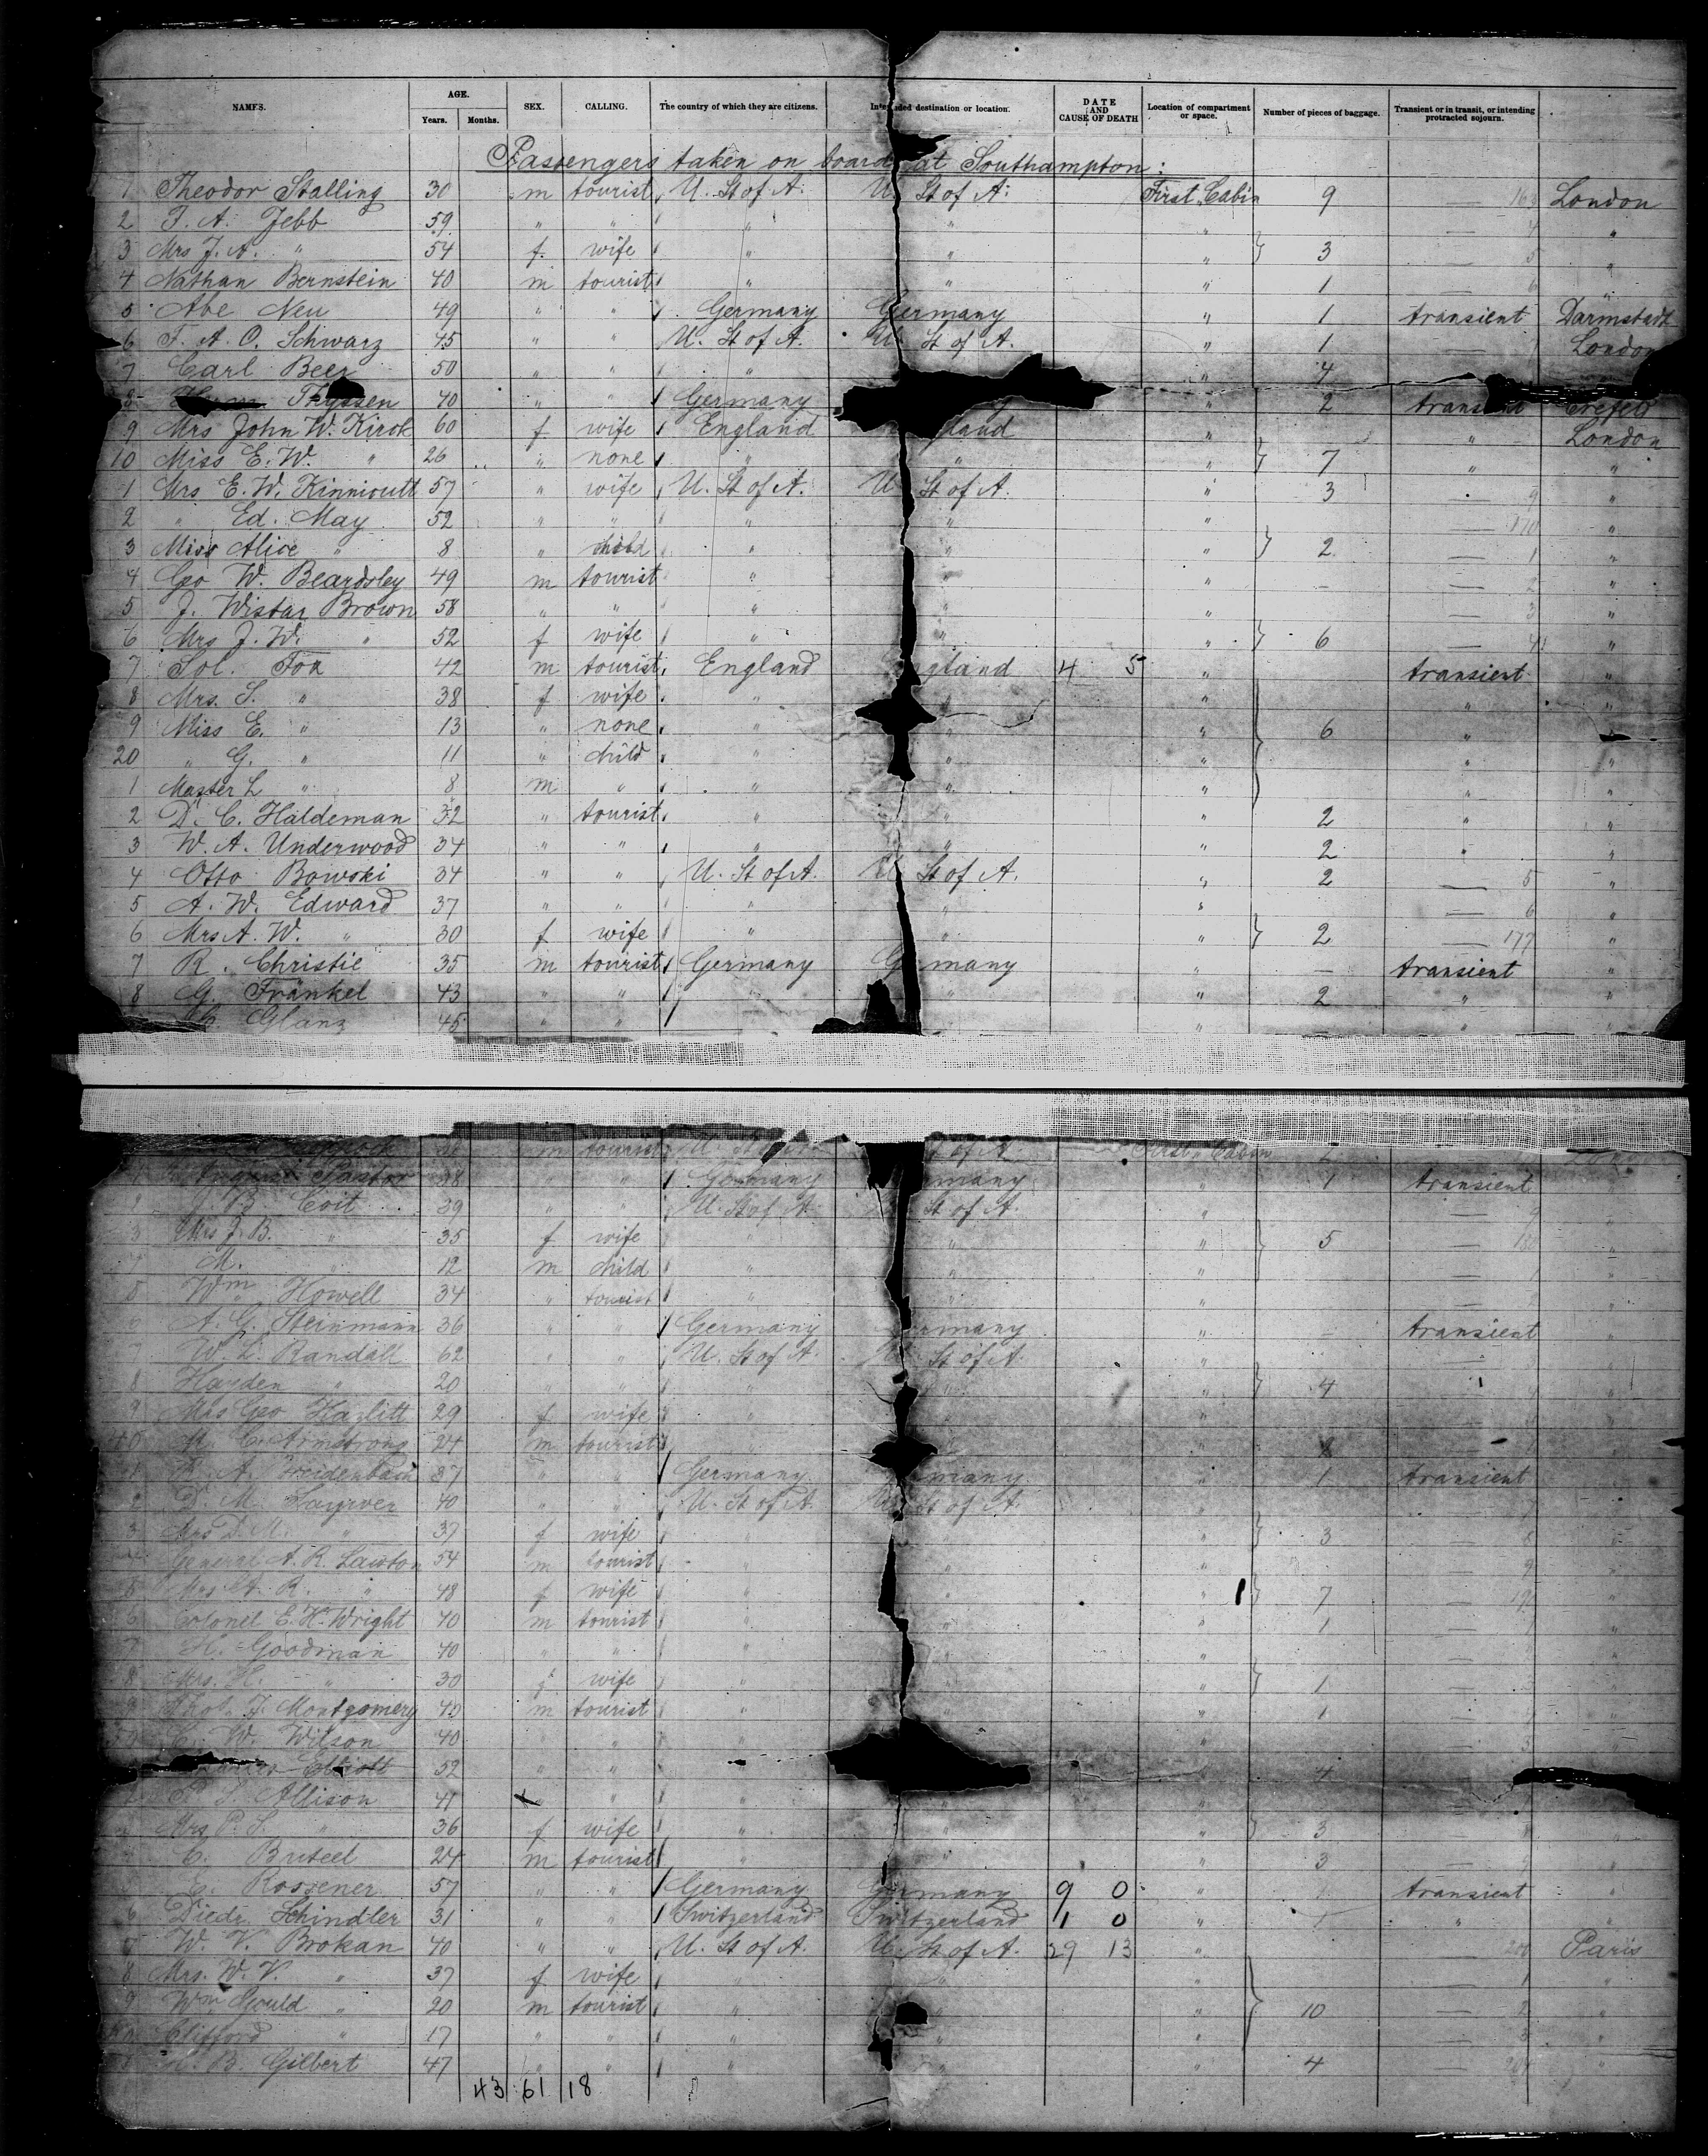 NAMES. AGE. Years. Months. SEX. CALLING. The country of which they are citizens. Intended destination or location. DATE AND CAUSE OF DEATH Location of compartment or space. Number of pieces of baggage. Transient or in transit, or intending protracted sojourn.
Passengers taken on board at Southampton:
1 Theodor Stalling 30 m tourist U. St of A. U. St of A. First Cabin 9 — London
2 F. A. Jebb 59 " " " " " — "
3 Mrs F. A. " 54 f. wife " " " } 3 — "
4 Nathan Bernstein 40 m tourist " " " 1 — "
5 Abe Neu 49 " " Germany Germany " 1 transient Darmstadt
6 F. A. O. Schwarz 45 " " U. St of A. U. St of A. " 1 — London
7 Carl Beer 50 " " " " 4
8 Thyssen 40 " " Germany " 2 transient Crefeld
9 Mrs John W. Kirok 60 f wife England England " " London
10 Miss E. W. " 26 " none " " " } 7 " "
1 Mrs E. W. Kinnicutt 57 " wife U. St of A. U. St of A. " 3 — 9 "
2 " Ed. May 52 " " " " " 170 "
3 Miss Alice " 8 " child " " " } 2 — 1 "
4 Geo W. Beardsley 49 m tourist " " " — — 2 "
5 J. Wistar Brown 58 " " " " " — 3 "
6 Mrs J. W. " 52 f wife " " " } 6 — 4 "
7 Sol. Fox 42 m tourist England England 4 5 " transient "
8 Mrs. S. " 38 f wife " " " " "
9 Miss E. " 13 " none " " " 6 " "
20 " G. " 11 " child " " " " "
1 Master L " 8 m " " " " " "
2 D. C. Haldeman 32 " tourist " " " 2 " "
3 W. A. Underwood 34 " " " " " 2 " "
4 Otto Bowski 34 " " U. St of A. U. St of A. " 2 — 5 "
5 A. W. Edward 37 " " " " " — 6 "
6 Mrs A. W. " 30 f wife " " " } 2 — 177 "
7 R. Christie 35 m tourist Germany Germany " — transient "
8 G. Fränkel 43 " " " " 2 " "
Glanz 45 " " " "
m tourist U. St of A. of A. First Cabin
Pastor 38 " " Germany Germany " 1 transient "
2 J. B. Coit 39 " " U. St of A. St of A. " — 9 "
3 Mrs J. B. " 35 f wife " " " } 5 — "
4 M. " 12 m child " " " — 1 "
5 Wm Howell 34 " tourist " " " — 2 "
6 A. G. Steinmann 36 " " Germany Germany " — transient "
7 W. L. Randall 62 " " U. St of A. U. St of A. " — "
8 Hayden " 20 " " " " " } 4 — "
9 Mrs Geo Hazlitt 29 f wife " " " — "
C. Armstrong 24 m tourist " " —
1 A. Heidenbach 37 " " Germany Germany " 1 transient
2 D. M. 40 " " U. St of A. U. St of A. " —
3 Mrs D. M. " 37 f wife " " " } 3 —
General A. R. Lawton 54 m tourist " " " — 9
5 Mrs A. R. " 48 f wife " " " } 7 —
6 Colonel E. H. Wright 40 m tourist " " " 1 —
7 H. Goodman 40 " " " " " —
8 Mrs. H. " 30 f wife " " " } 1 —
Thos. F. Montgomery 40 m tourist " " " 1 —
C. W. Wilson 40 " " " " —
Elliott 52 " " " 4
P. S. Allison 41 " " " "
Mrs P. S. " 36 f wife " " " } 3 — "
C. Buteel 24 m tourist " " " 3 — "
Rossener 57 " " Germany Germany 9 0 " 1 transient "
6 Diedr. Schindler 31 " " Switzerland Switzerland 1 0 " 1 " "
7 W. V. Brokan 40 " " U. St of A. U. St of A. 29 13 " — 200 Paris
8 Mrs. W. V. " 37 f wife " " " — 1 "
9 Wm Gould " 20 m tourist " " " } 10 — 2 "
Clifford " 17 " " " " " — 3 "
B. Gilbert 47 " " " " " 4 — "
43 61 18